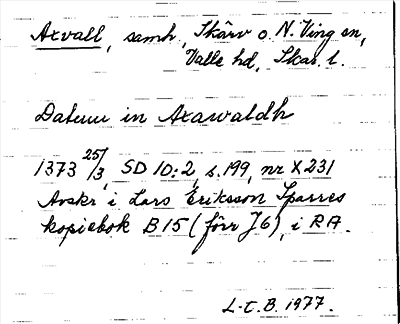 Axvall, samh., Skärv o. N. Ving sn,
Valle hd, Skar. l.
Datum in Axawaldh
1373 25/3, SD 10:2, s. 199, nr X 231
Avskr i Lars Eriksson Sparres
kopiebok B 15 (förr J 6), i RA.
L-E. B. 1977.